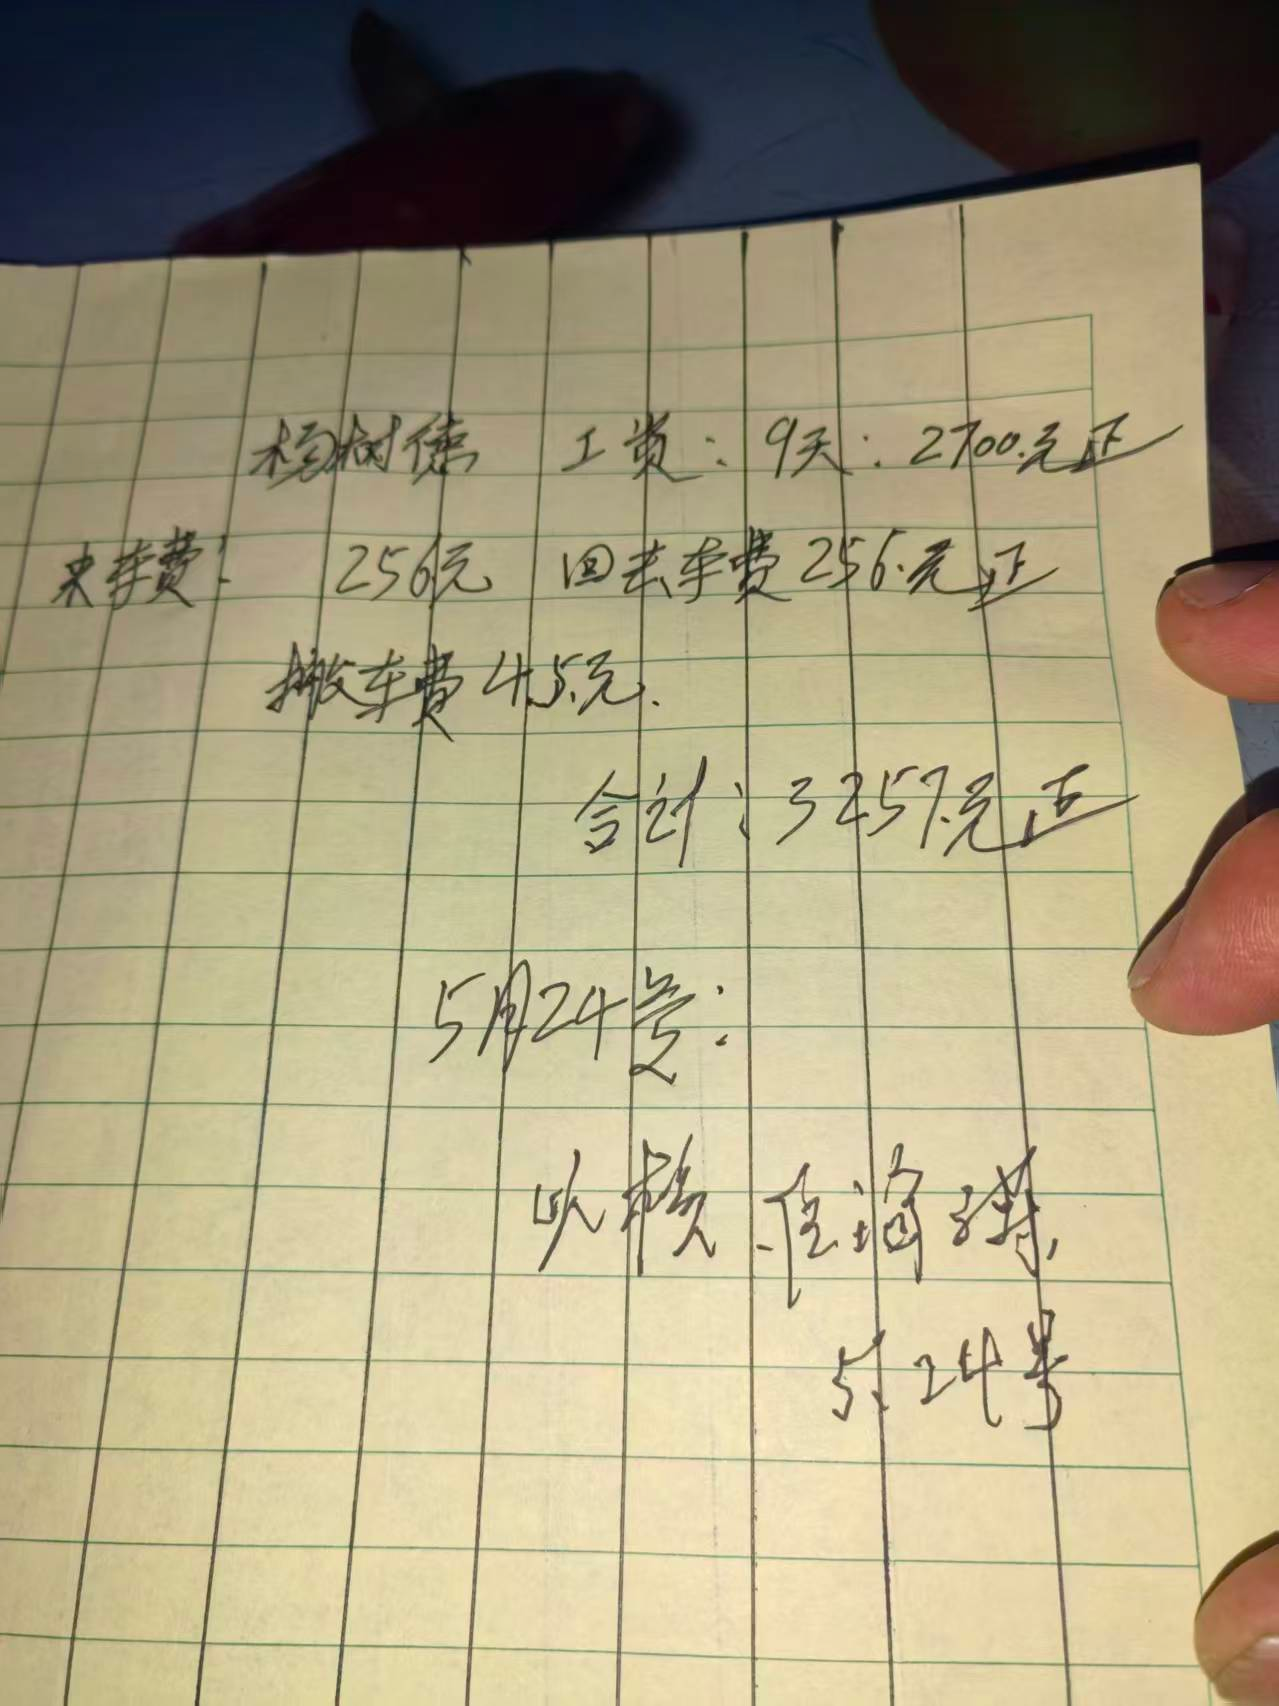 杨树德 工资：9天：2700.元正
来车费： 256元 回去车费256.元正
搬车费45.元.
合计：3257.元正
5月24号：
5.24号